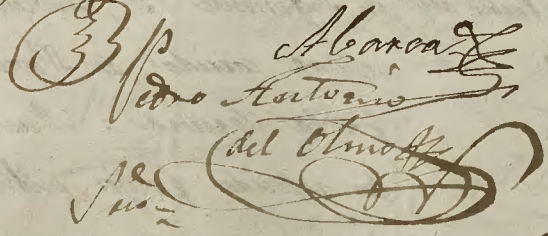 Abarca
Pedro Antonio
del Olmo